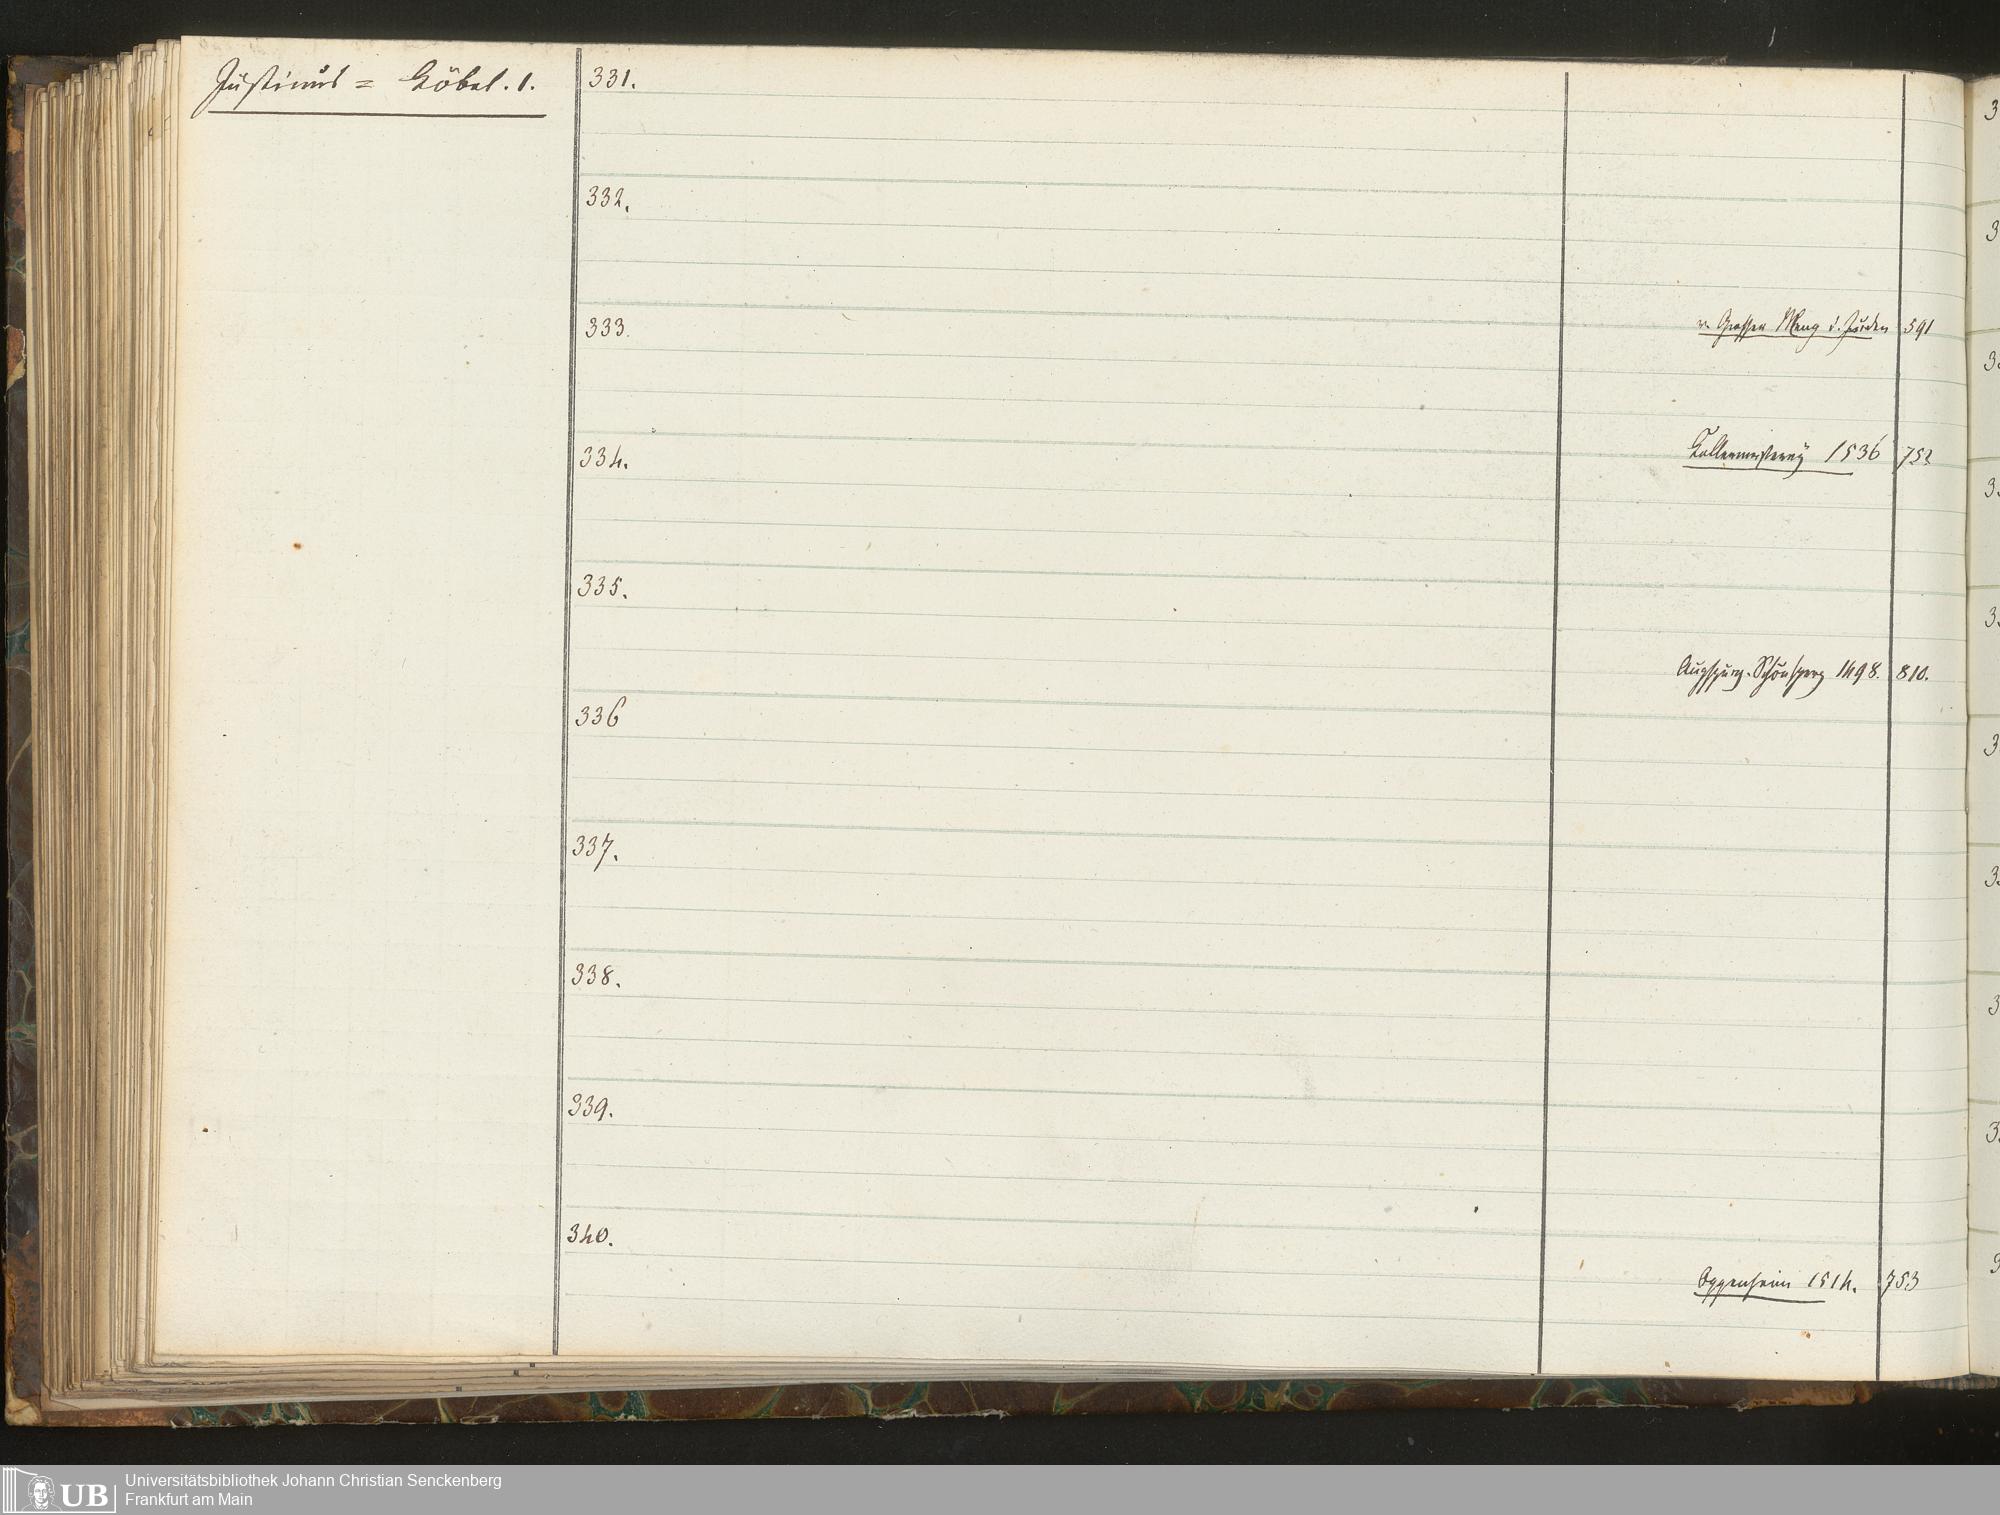 Justinus = Köbel. 1.
331.
332.
333.
v. Grossen Meng d. Juden 591
334.
Kellermeisterey 1536 752
335.
Augspurg. Schönsperg 1498. 810.
336
337.
338.
339.
340.
Oppenheim 1514. 753
UB
Universitätsbibliothek Johann Christian Senckenberg
Frankfurt am Main